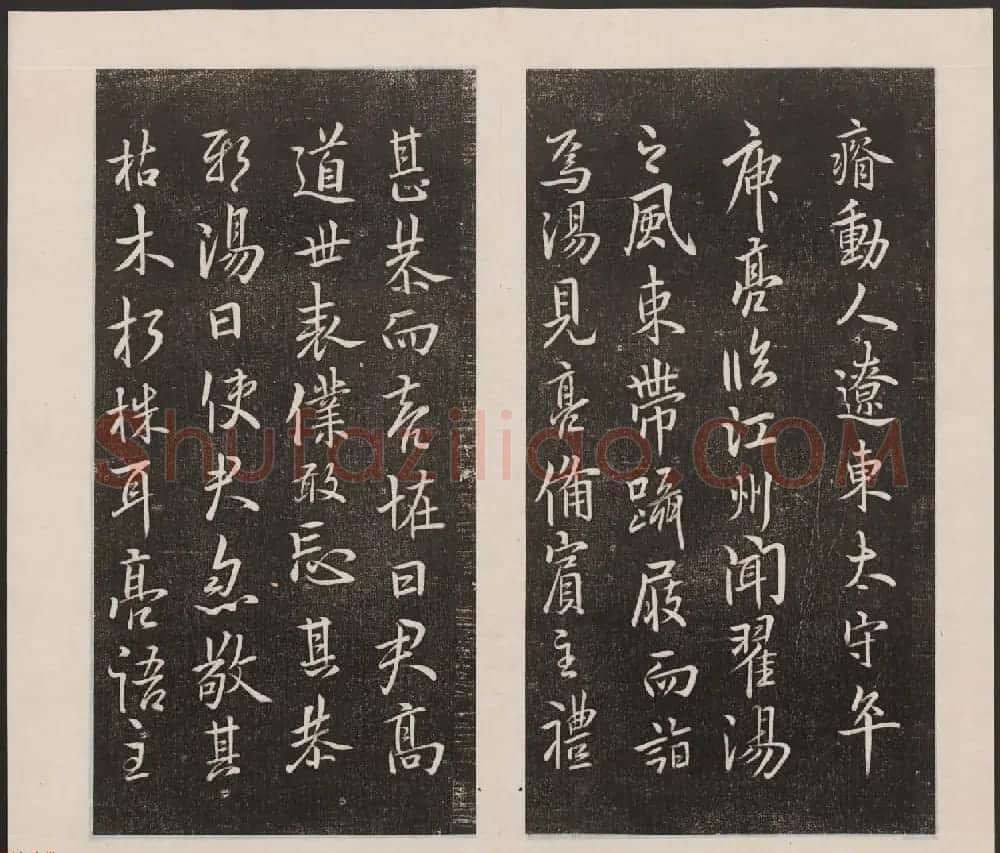 瘠動人遼東太守卒
庾亮臨江州聞翟湯
之風束帶躡屐而詣
焉湯見亮備賓主禮
甚恭而亮曰君高
道世表僕敢忘其恭
耶湯曰使君忽敬其
枯木朽株耳亮語主
Shufaziliao.COM